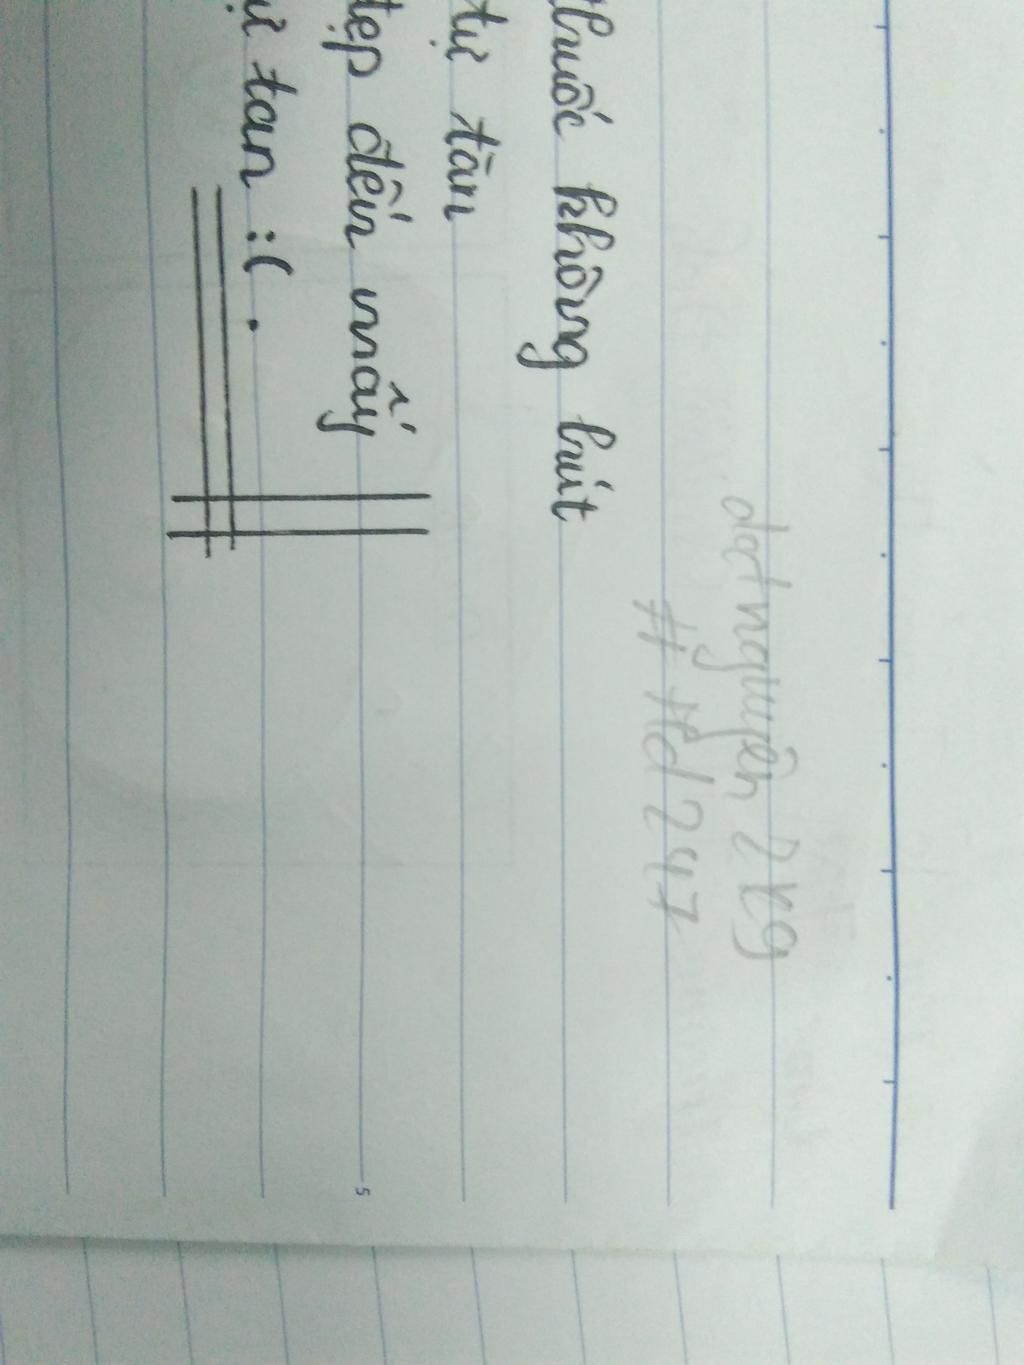 datnguyên2k9
#Hd247
thuốc không hút
tự tàn
đẹp đến mấy
tự tan :( .
5